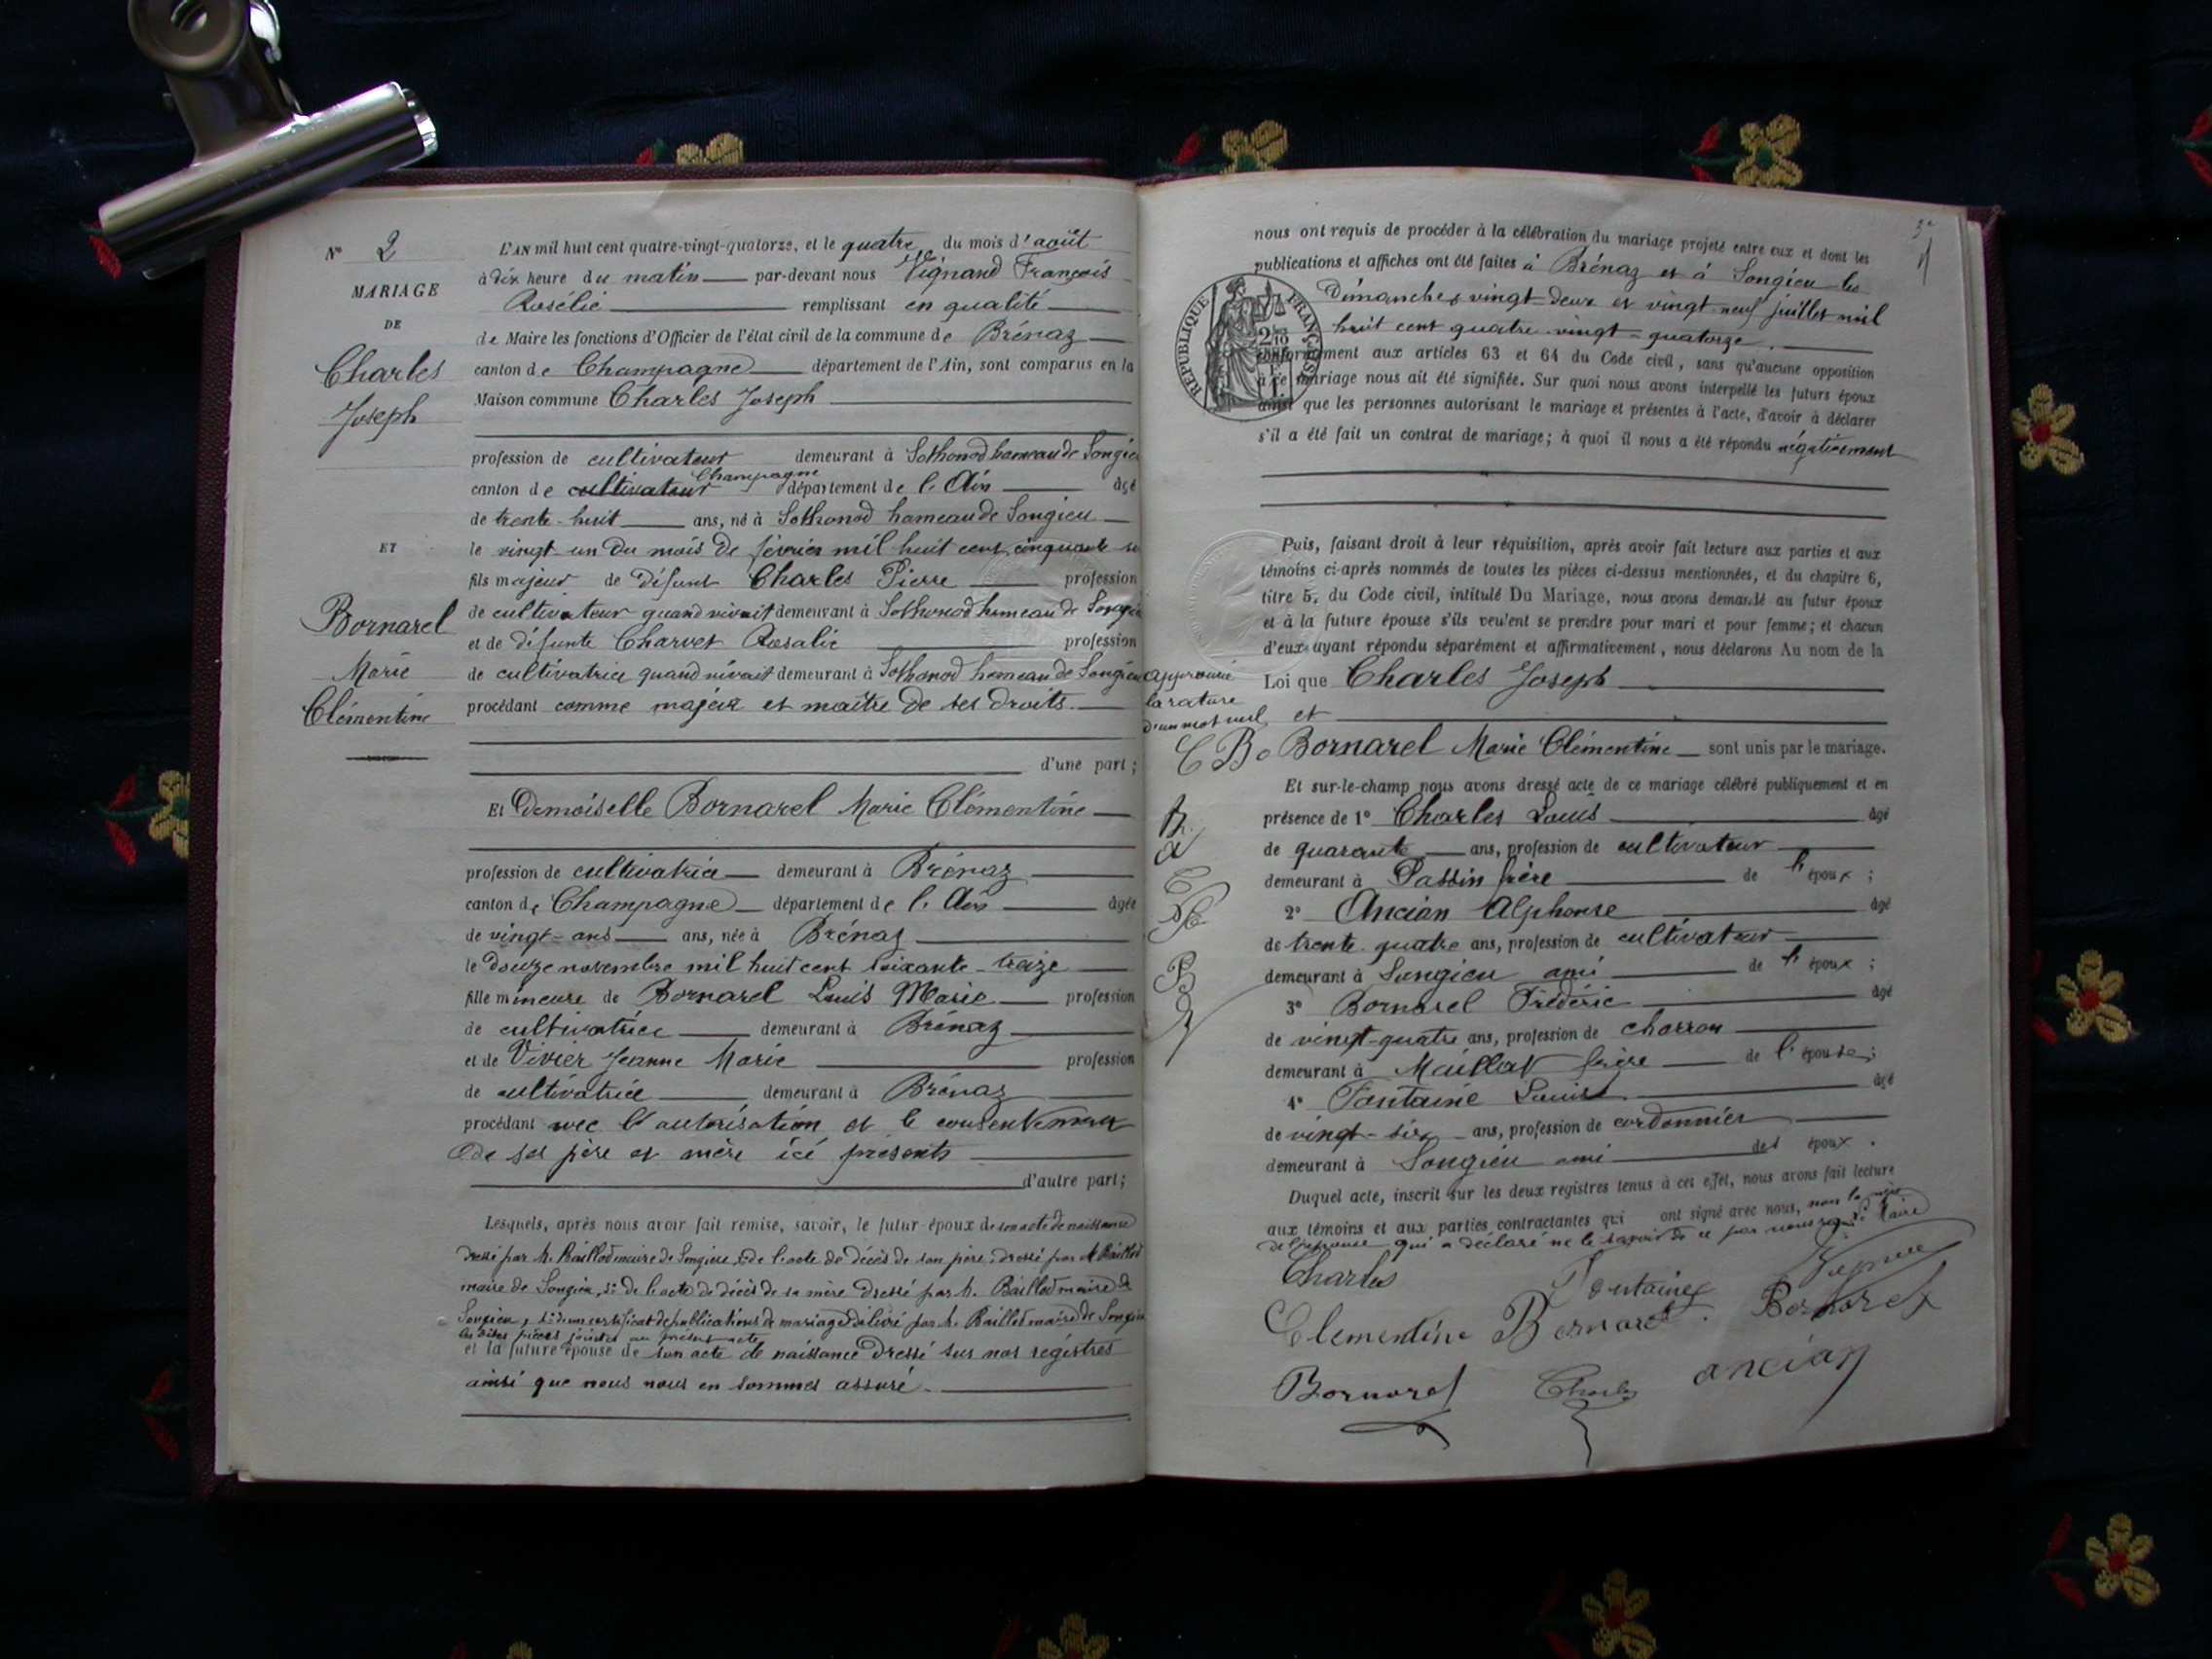 N° 2
MARIAGE
DE
Charles
Joseph
ET
Bornarel
Marie
Clémentine
L'AN mil huit cent quatre-vingt-quatorze, et le quatre du mois d'août
à dix heure du matin par-devant nous Vignand François
Rosélie remplissant en qualité
de Maire les fonctions d'Officier de l'état civil de la commune de Brénaz
canton de Champagne département de l'Ain, sont comparus en la
Maison commune Charles Joseph
profession de cultivateur demeurant à Sothonod hameau de Songieu
canton de cultivateur Champagne département de l'Ain âgé
de trente-huit ans, né à Sothonod hameau de Songieu
le vingt un du mois de février mil huit cent cinquante
fils majeur de défunt Charles Pierre profession
de cultivateur quand vivait demeurant à Sothonod hameau de Songieu
et de défunte Charvet Rosalie profession
de cultivatrice quand vivait demeurant à Sothonod hameau de Songieu
procédant comme majeur et maître de ses droits.
d'une part ;
Et Demoiselle Bornarel Marie Clémentine
profession de cultivatrice demeurant à Brénaz
canton de Champagne département de l'Ain âgée
de vingt-ans ans, née à Brénaz
le douze novembre mil huit cent soixante-treize
fille mineure de Bornarel Louis Marie profession
de cultivatrice demeurant à Brénaz
et de Vivier Jeanne Marie profession
de cultivatrice demeurant à Brénaz
procédant avec l'autorisation et le consentement
de ses père et mère ici présents
d'autre part ;
Lesquels, après nous avoir fait remise, savoir, le futur-époux de son acte de naissance
dressé par M. Baillod maire de Songieu, 2° de l'acte de décès de son père, dressé par M. Baillod
maire de Songieu, 3° de l'acte de décès de sa mère dressé par M. Baillod maire de
Songieu, 4° d'un certificat de publications de mariage délivré par M. Baillod maire de Songieu
les dites pièces jointes au présent acte
et la future épouse de son acte de naissance dressé sur nos régistres
ainsi que nous nous en sommes assuré.
nous ont requis de procéder à la célébration du mariage projeté entre eux et dont les
publications et affiches ont été faites à Brénaz et à Songieu les
Dimanches vingt-deux et vingt-neuf juillet mil
huit cent quatre-vingt-quatorze.
RÉPUBLIQUE FRANÇAISE
conformément aux articles 63 et 64 du Code civil, sans qu'aucune opposition
à ce mariage nous ait été signifiée. Sur quoi nous avons interpellé les futurs époux
ainsi que les personnes autorisant le mariage et présentes à l'acte, d'avoir à déclarer
s'il a été fait un contrat de mariage ; à quoi il nous a été répondu négativement
Puis, faisant droit à leur réquisition, après avoir fait lecture aux parties et aux
témoins ci-après nommés de toutes les pièces ci-dessus mentionnées, et du chapitre 6,
titre 5, du Code civil, intitulé Du Mariage, nous avons demandé au futur époux
et à la future épouse s'ils veulent se prendre pour mari et pour femme ; et chacun
d'eux ayant répondu séparément et affirmativement, nous déclarons Au nom de la
Loi que Charles Joseph
approuvé
la rature
d'un mot nul
et
Bornarel Marie Clémentine sont unis par le mariage.
Et sur-le-champ nous avons dressé acte de ce mariage célébré publiquement et en
présence de 1° Charles Louis âgé
de quarante ans, profession de cultivateur
demeurant à Passin frère de l'époux ;
2° Ancian Alphonse âgé
de trente-quatre ans, profession de cultivateur
demeurant à Songieu ami de l'époux ;
3° Bornarel Frédéric âgé
de vingt-quatre ans, profession de charron
demeurant à Maillat frère de l'épouse ;
4° Fontaine Louis âgé
de vingt-six ans, profession de cordonnier
demeurant à Songieu ami des époux.
Duquel acte, inscrit sur les deux registres tenus à cet effet, nous avons fait lecture
aux témoins et aux parties contractantes qui ont signé avec nous, non la mère
de l'épouse qui a déclaré ne le savoir de ce par nous requise Maire
Charles Fontaine
Clementine Bornarel Bornarel
Bornarel Charles ancian